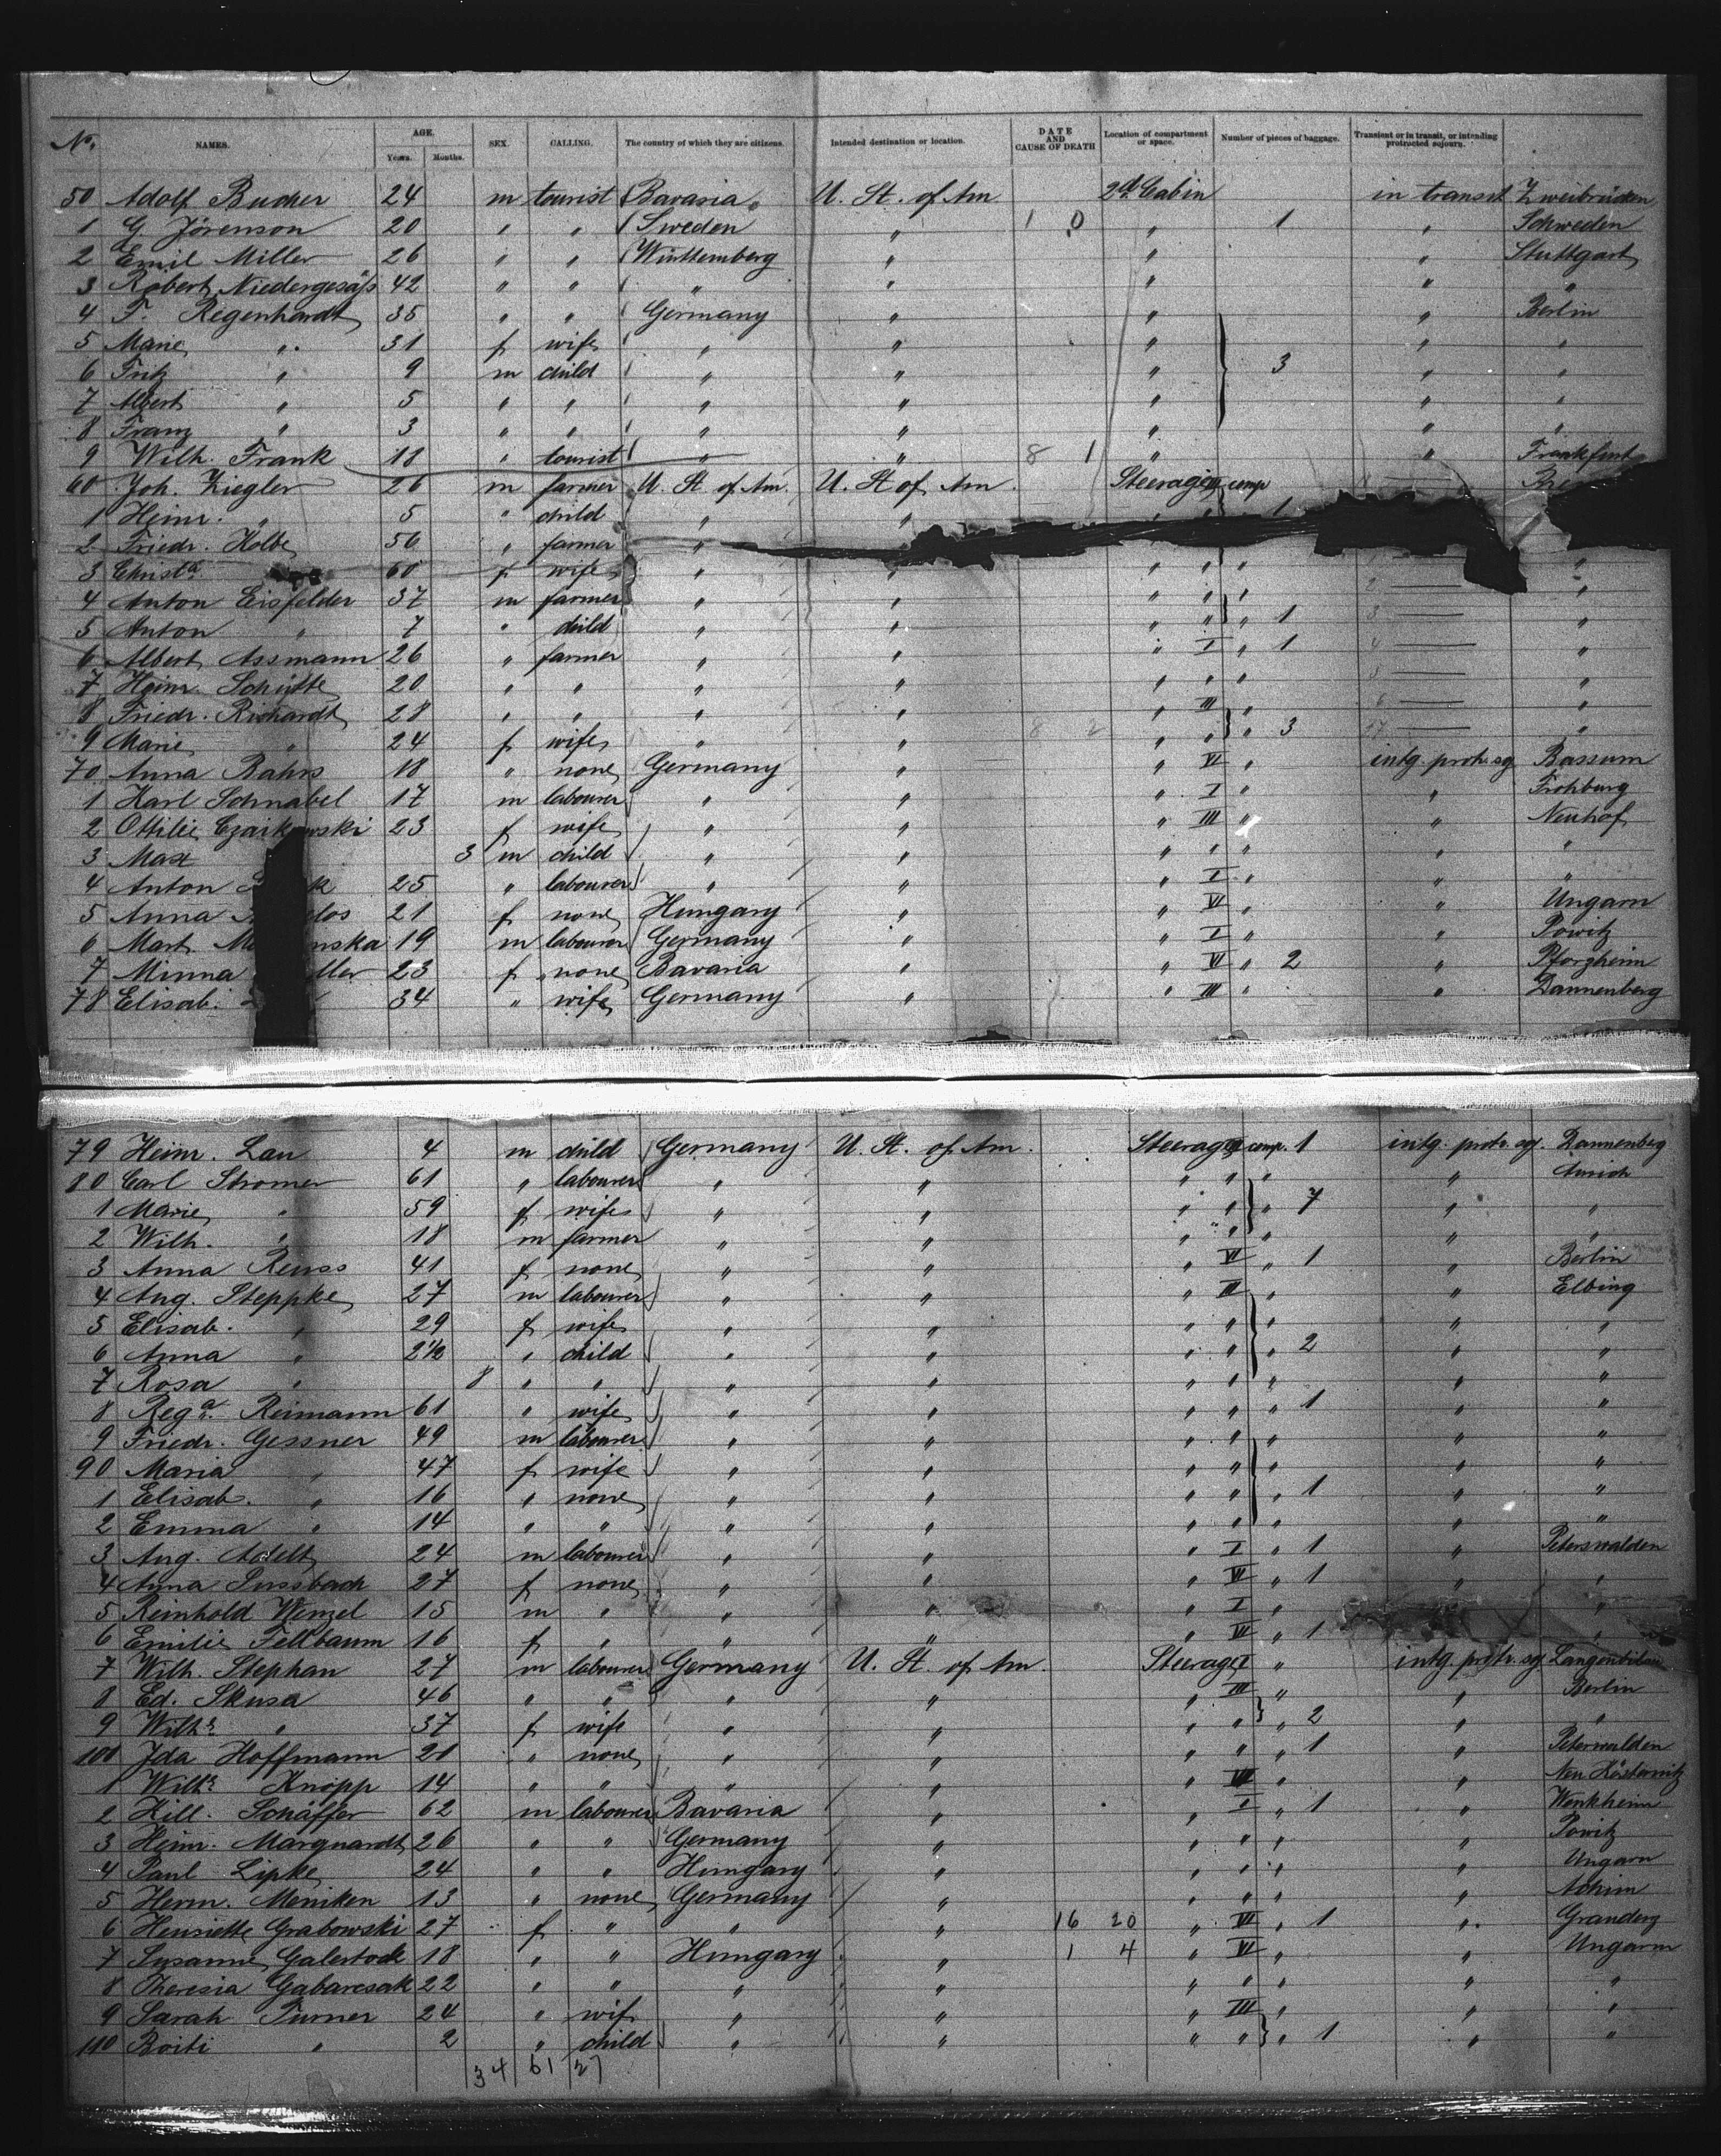 No. NAMES. AGE. Years. Months. SEX. CALLING. The country of which they are citizens. Intended destination or location. DATE AND CAUSE OF DEATH Location of compartment or space. Number of pieces of baggage. Transient or in transit, or intending protracted sojourn.
50 Adolf Bucher 24 m tourist Bavaria U. St. of Am 2d. Cabin in transit Zweibrücken
1 G. Jörenson 20 " " Sweden " 1 0 " 1 " Schweden
2 Emil Miller 26 " " Württemberg " " " Stuttgart
3 Robert Niedergesäß 42 " " " " " " "
4 F. Regenhardt 35 " " Germany " " " Berlin
5 Marie " 31 f wife " " " " "
6 Fritz " 9 m child " " " 3 " "
7 Albert " 5 " " " " " " "
8 Franz " 3 " " " " " " "
9 Wilh. Frank 18 " tourist " " 8 1 " " Frankfurt
60 Joh. Ziegler 26 m farmer U. St. of Am. U. St of Am. Steerage comp
1 Heinr. " 5 " child " " 1
2 Friedr. Kolbe 56 " farmer "
3 Christa. 60 f wife " " " " "
4 Anton Eisfelder 37 m farmer " " " " " 2 "
5 Anton " 7 " child " " " " " 1 3 "
6 Albert Assmann 26 " farmer " " " I " 1 4 "
7 Heinr. Schütte 20 " " " " " " " 5 "
8 Friedr. Richardt 28 " " " " " III " 6 "
9 Marie " 24 f wife " " 8 2 " " " 3 "
70 Anna Bahrs 18 " none Germany " " VI " intg. protr. sg Bassum
1 Karl Schnabel 17 m labourer " " " I " " Frohburg
2 Ottilie Czaikowski 23 f wife " " " III " " Neuhof
3 Max 3 m child " " " " " " "
4 Anton 25 " labourer " " " I " " "
5 Anna 21 f none Hungary " " VI " " Ungarn
6 Mart. 19 m labourer Germany " " I " " Powitz
7 Minna 23 f none Bavaria " " VI " 2 " Pforzheim
78 Elisab. 34 " wife Germany " " III " " Dannenberg
79 Heinr. Lau 4 m child Germany U. St. of Am. Steerage comp. 1 intg. protr. sg. Dannenberg
80 Carl Stromer 61 " labourer " " " " " " Aurich
1 Marie " 59 f wife " " " " " 7 " "
2 Wilh. " 18 m farmer " " " " " " "
3 Anna Reuss 41 f none " " " VI " 1 " Berlin
4 Aug. Steppke 27 m labourer " " " III " " Elbing
5 Elisab. " 29 f wife " " " " " " "
6 Anna " 2½ " child " " " " " 2 " "
7 Rosa " 8 " " " " " " " " "
8 Rega. Reimann 61 " wife " " " " " 1 " "
9 Friedr. Gessner 49 m labourer " " " " " " "
90 Maria " 47 f wife " " " " " " "
1 Elisab. " 16 " none " " " " " 1 " "
2 Emma " 14 " " " " " " " " "
3 Aug. Adelt 24 m labourer " " " I " 1 " Peterswalden
4 Anna Pussbach 27 f none " " " VI " 1 " "
5 Reinhold Wenzel 15 m " " " " I " " "
6 Emilie Fellbaum 16 f " " " " VI " 1 "
7 Wilh. Stephan 27 m labourer Germany U. St. of Am. Steerage I " intg. protr. sg Langenbilau
8 Ed. Skusa 46 " " " " " III " " Berlin
9 Wilhe. " 37 f wife " " " " " 2 " "
100 Ida Hoffmann 20 " none " " " " " 1 " Peterwalden
1 Wilhe. Knöpp 14 " " " " " VI " " Neu
2 Kill. Schäffer 62 m labourer Bavaria " " I " 1 " Wenkheim
3 Heinr. Marquardt 26 " " Germany " " " " " Powitz
4 Paul Lipke 24 " " Hungary " " " " " Ungarn
5 Herm. Meniken 13 " none Germany " " " " " Achim
6 Henriette Grabowski 27 f " " " 16 20 " VI " 1 "
7 Susanne Galestock 18 " " Hungary " 1 4 " VI " " Ungarn
8 Theresia Gabarcsak 22 " " " " " " " " "
9 Sarah Turner 24 " wife " " " III " " "
110 Boiti " 2 " child " " " " " 1 " "
34 61 27